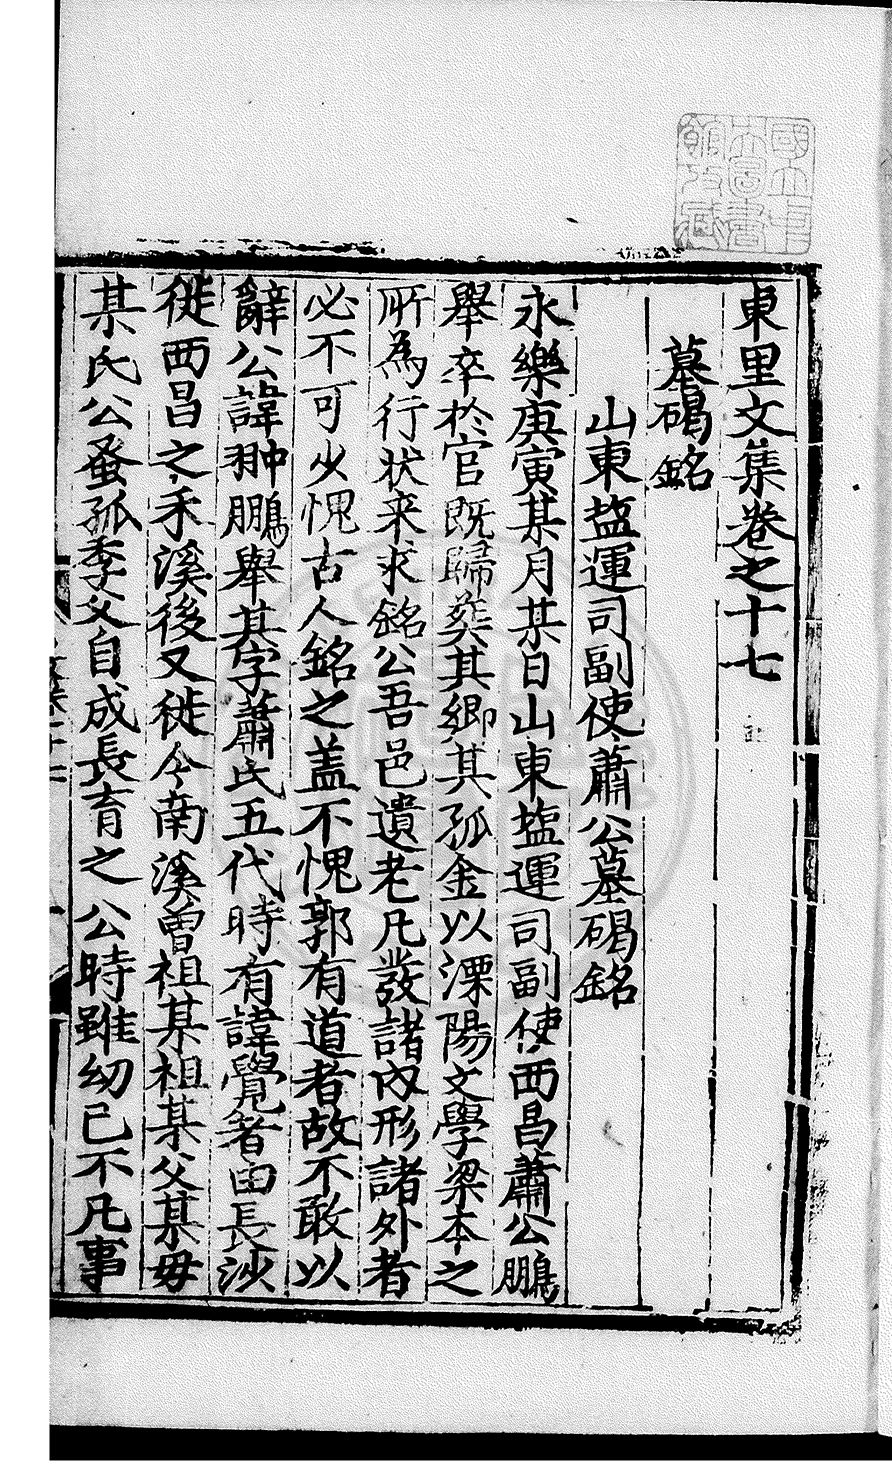 東里文集卷之十七
墓碣銘
山東塩運司副使蕭公墓碣銘
永樂庚寅某月某日山東塩運司副使西昌蕭公鵬
舉卒於官既歸葬其鄉其孤金以溧陽文學梁本之
所為行状来求銘公吾邑遺老凡發諸內形諸外者
必不可少愧古人銘之盖不愧郭有道者故不敢以
辭公諱翀鵬舉其字蕭氏五代時有諱覺者由長沙
徙西昌之禾溪後又徙今南溪曽祖某祖某父某毋
某氏公蚤孤季父自成長育之公時雖幼已不凡事
國立中
央圖書
館收藏